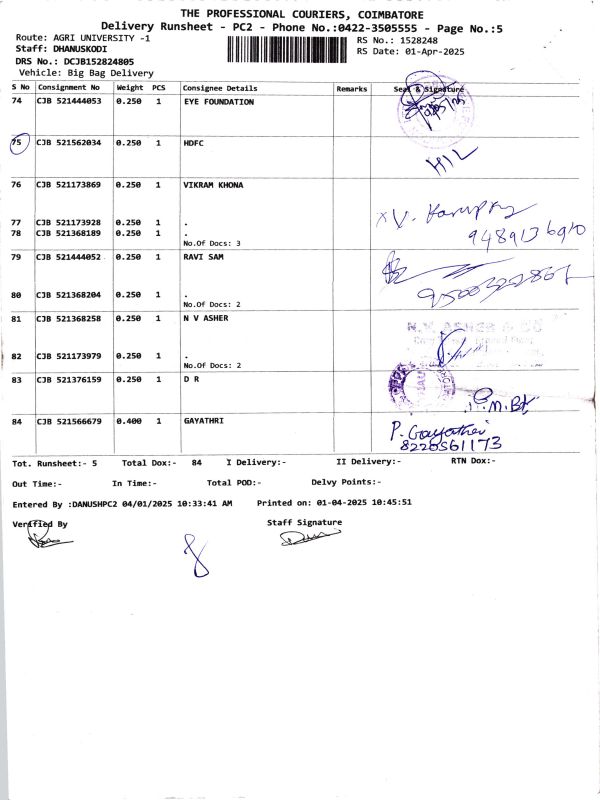 THE PROFESSIONAL COURIERS, COIMBATORE
Delivery Runsheet - PC2 - Phone No.:0422-3505555 - Page No.:5
Route: AGRI UNIVERSITY -1
RS No.: 1528248
Staff: DHANUSKODI
RS Date: 01-Apr-2025
DRS No.: DCJB152824805
Vehicle: Big Bag Delivery
S No Consignment No Weight PCS Consignee Details Remarks Seal & Signature
74 CJB 521444053 0.250 1 EYE FOUNDATION
75 CJB 521562034 0.250 1 HDFC
76 CJB 521173869 0.250 1 VIKRAM KHONA
77 CJB 521173928 0.250 1 .
78 CJB 521368189 0.250 1 . 9489136910
No.Of Docs: 3
79 CJB 521444052 0.250 1 RAVI SAM
80 CJB 521368204 0.250 1 .
No.Of Docs: 2
81 CJB 521368258 0.250 1 N V ASHER
N.V. ASHER & CO
82 CJB 521173979 0.250 1 .
No.Of Docs: 2
83 CJB 521376159 0.250 1 D R
84 CJB 521566679 0.400 1 GAYATHRI P. Gayathri
8220561173
Tot. Runsheet:- 5 Total Dox:- 84 I Delivery:- II Delivery:- RTN Dox:-
Out Time:- In Time:- Total POD:- Delvy Points:-
Entered By :DANUSHPC2 04/01/2025 10:33:41 AM Printed on: 01-04-2025 10:45:51
Verified By Staff Signature